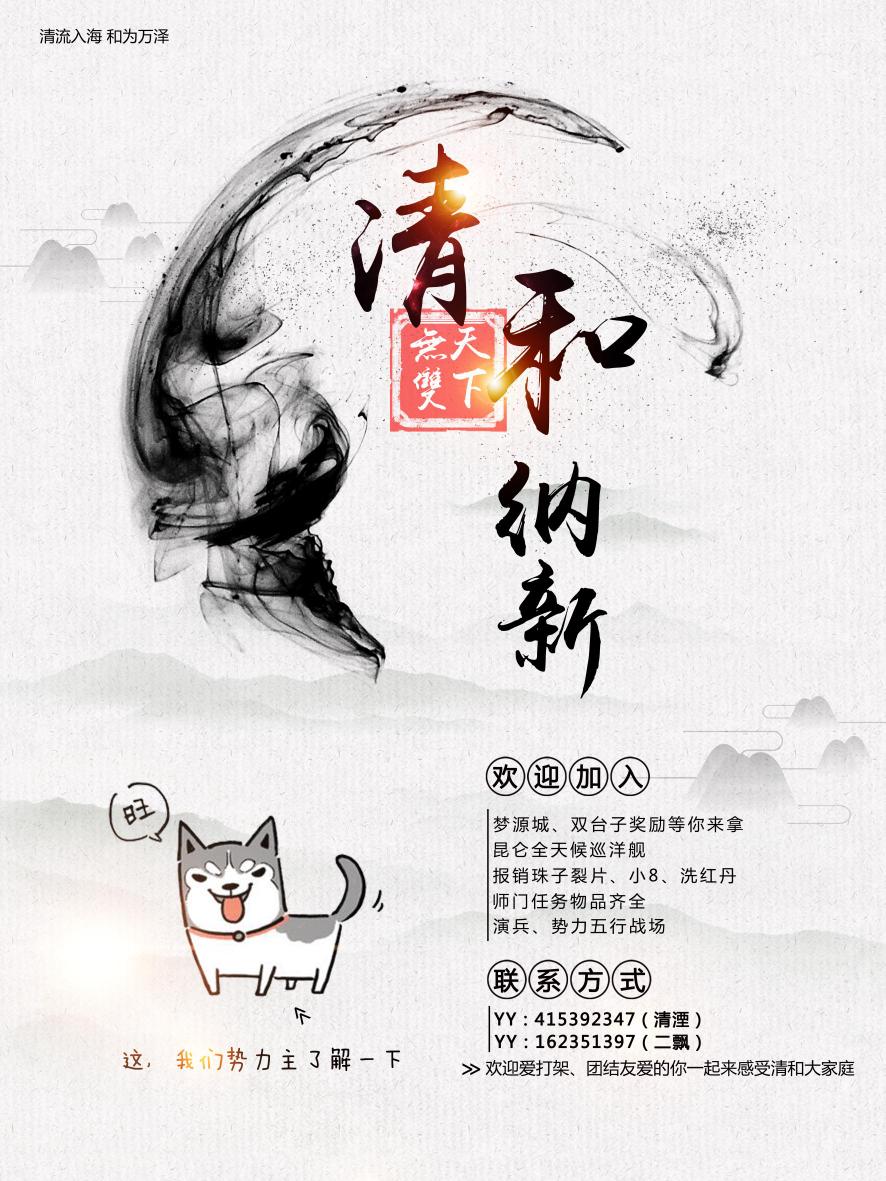 清流入海 和为万泽
清和
天下
無雙
纳新
欢迎加入
梦源城、双台子奖励等你来拿
昆仑全天候巡洋舰
报销珠子裂片、小8、洗红丹
师门任务物品齐全
演兵、势力五行战场
联系方式
YY：415392347（清湮）
YY：162351397（二飘）
>> 欢迎爱打架、团结友爱的你一起来感受清和大家庭
旺
这，我们势力主了解一下